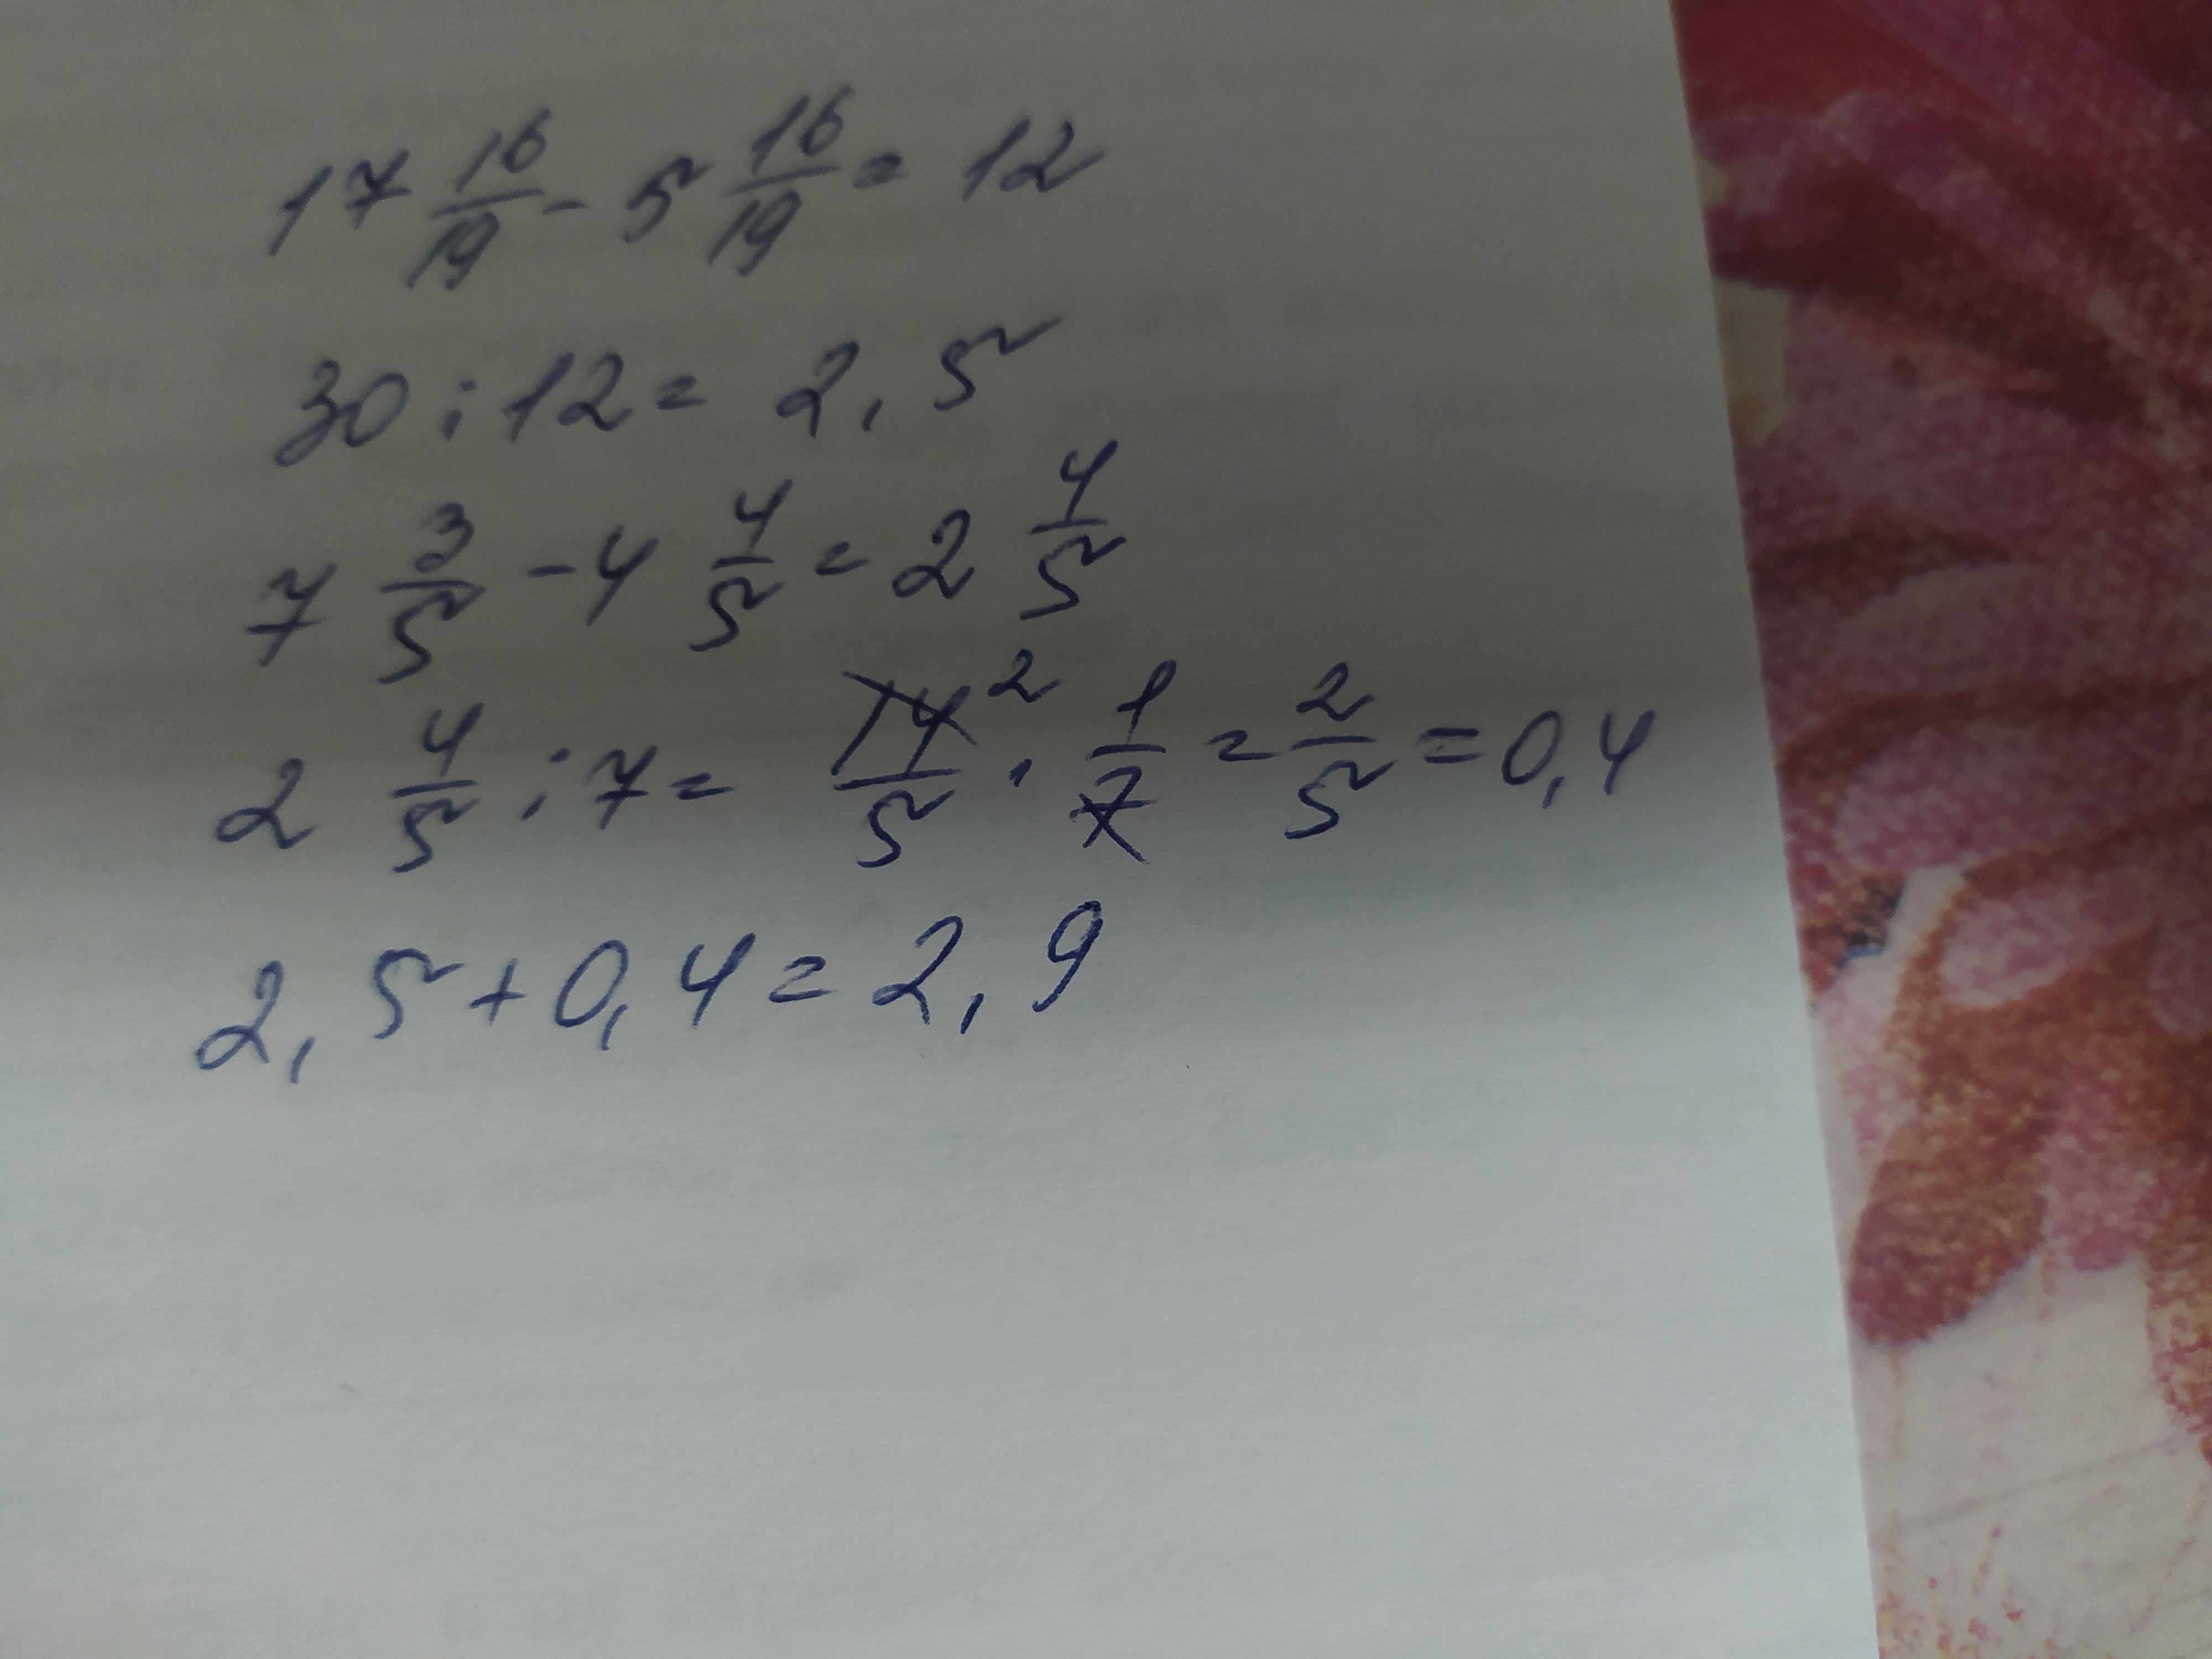 17 16/19 - 5 16/19 = 12
30 : 12 = 2,5
7 3/5 - 4 4/5 = 2 4/5
2 4/5 : 7 = 14/5 2 · 1/7 = 2/5 = 0,4
2,5 + 0,4 = 2,9